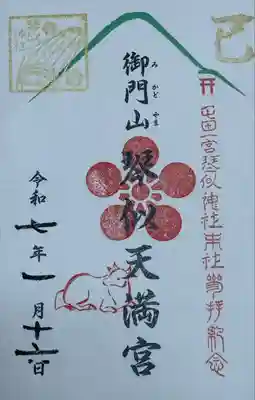 巳
開田一宮琴似神社末社兼拝記念
御門山琴似天満宮
みかどやま
令和七年一月十六日